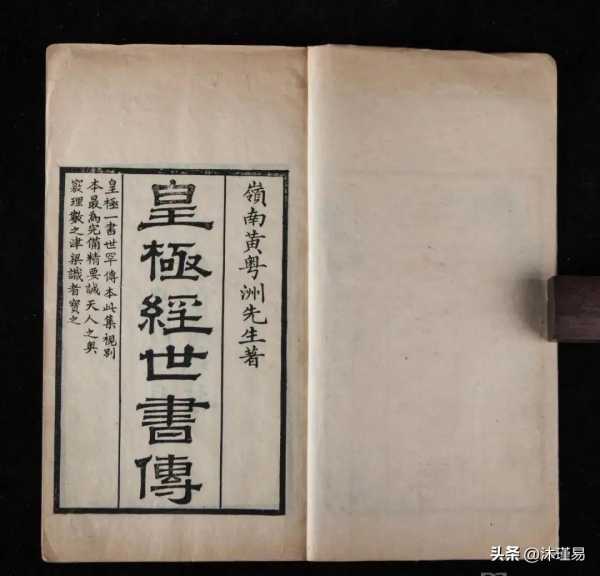 嶺南黄粤洲先生著
皇極經世書傳
皇極一書世罕傳本此集視別
本最為完備精要誠天人之奥
窽理數之津梁識者寶之
头条 @沐瑾易